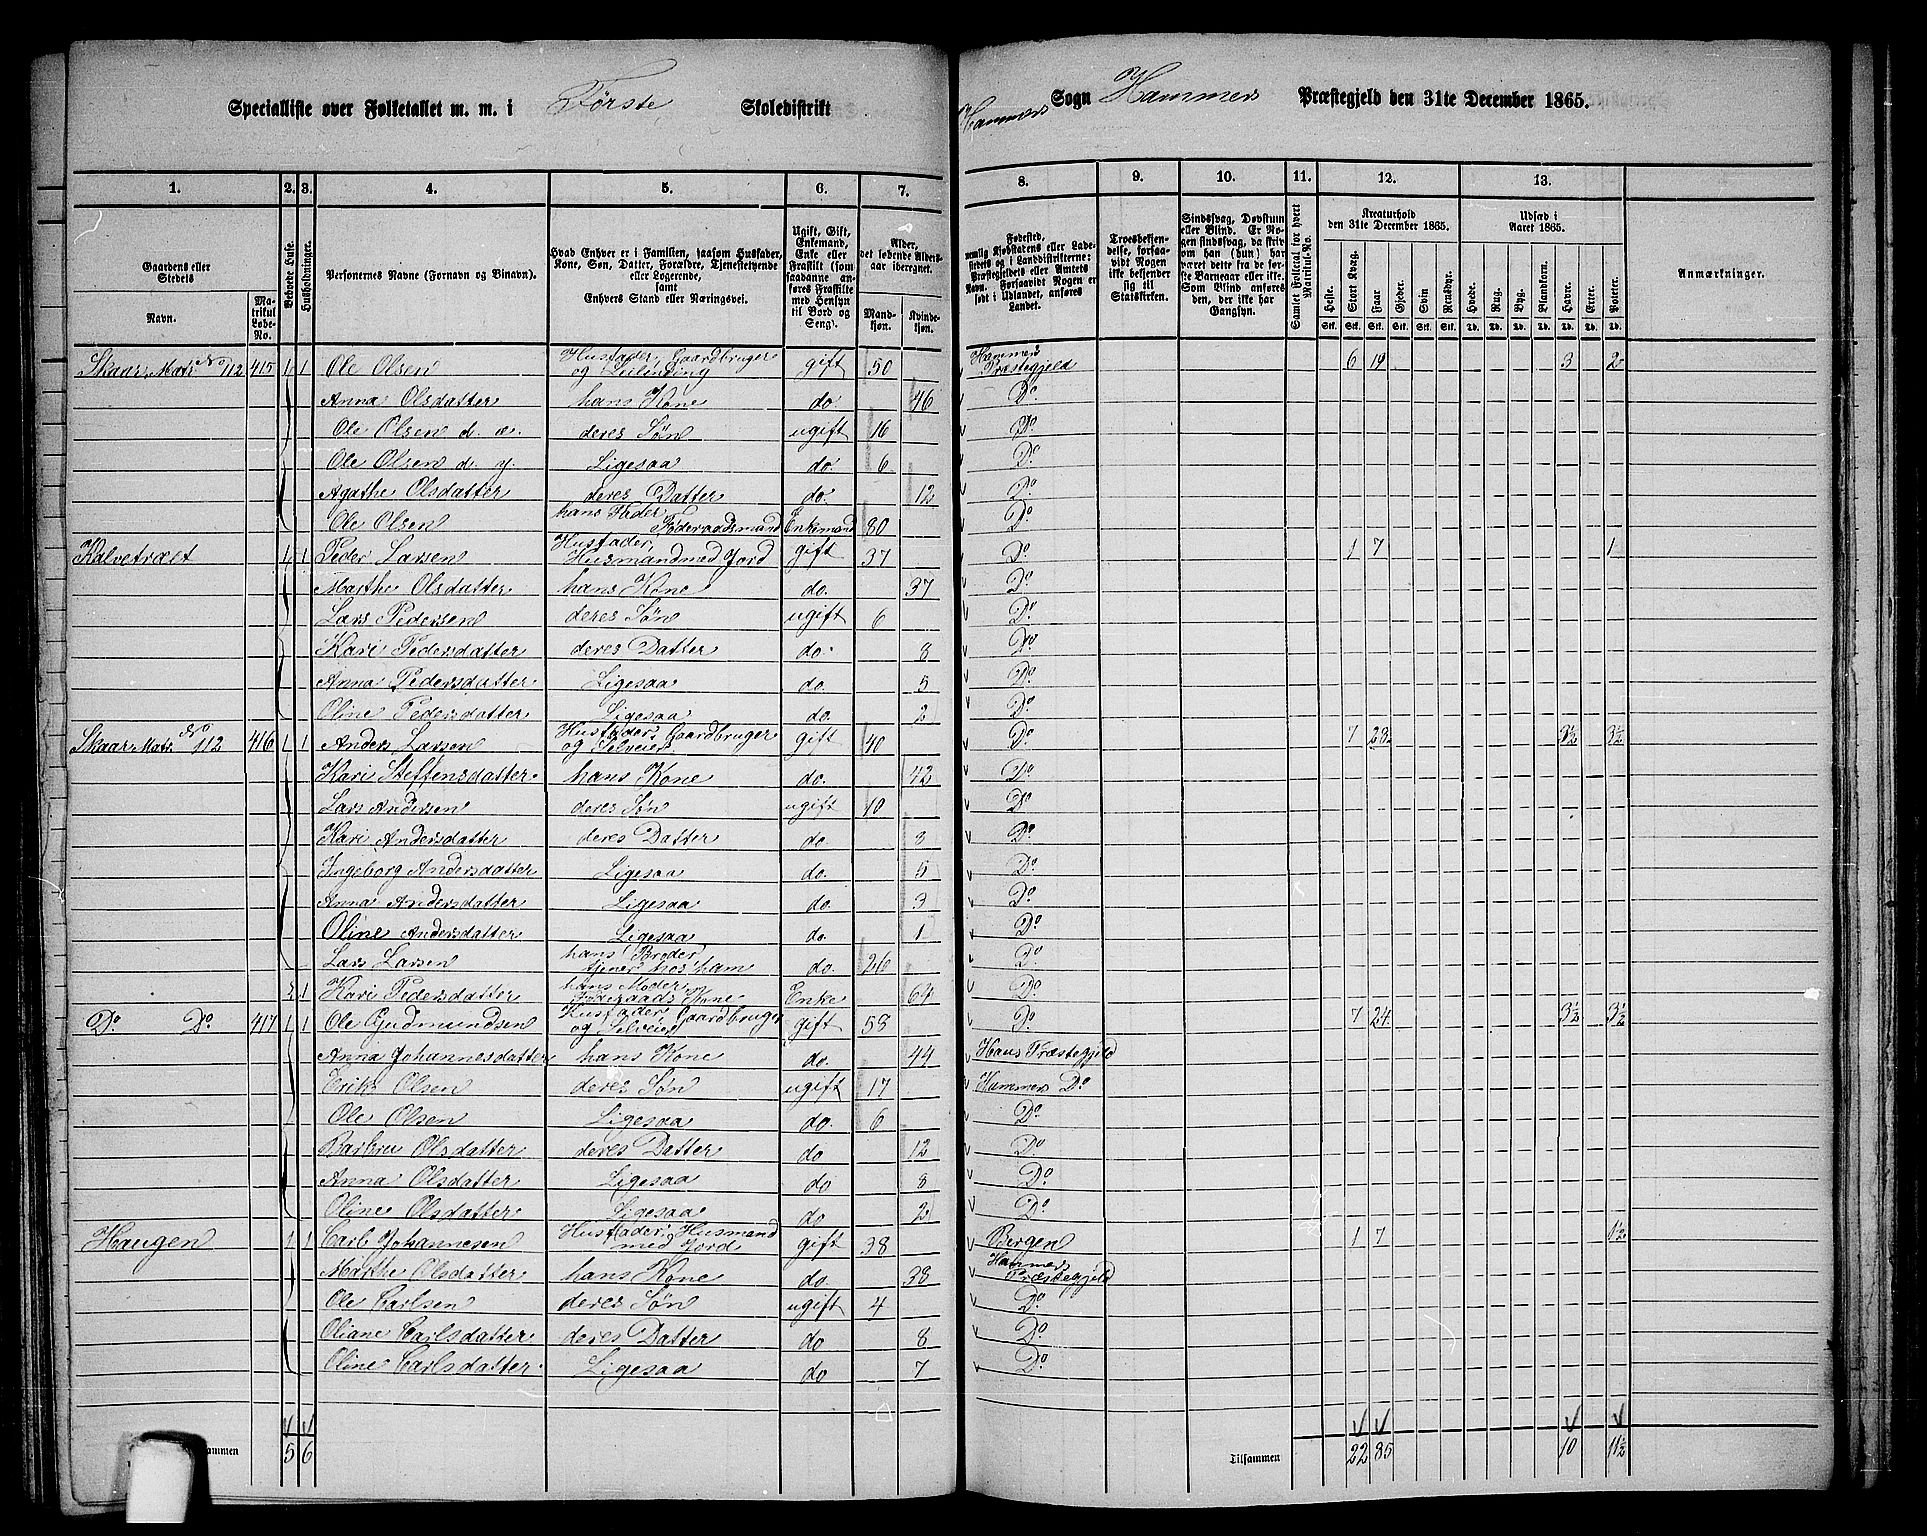 Specialliste over Folketallet m. m. i Første Skoledistrikt Hammers Sogn Hammers Præstegjeld den 31te December 1865.
1. 2. 3. 4. 5. 6. 7. 8. 9. 10. 11. 12. 13.
Gaardens eller Stedets
Navn.
Matrikul Løbe-No.
Beboede Huse.
Husholdninger.
Personernes Navne (Fornavn og Binavn).
Hvad Enhver er i Familien, saasom Husfader, Kone, Søn, Datter, Forældre, Tjenestetyende eller Logerende, samt Enhvers Stand eller Næringsvei.
Ugift, Gift, Enkemand, Enke eller Fraskilt (som saadanne anføres Fraskilte med Hensyn til Bord og Seng).
Alder, det løbende Aldersaar iberegnet.
Mandkjøn. Kvindekjøn.
Fødested, nemlig Kjøbstadens eller Ladestedets og i Landdistrikterne: Præstegjeldets eller Amtets Navn. Forsaavidt Nogen er født i Udlandet, anføres Landet.
Troesbekjendelse, forsaavidt Nogen ikke bekjender sig til Statskirken.
Sindssvag, Døvstum eller Blind. Er Nogen sindssvag, da skriv om han (hun) har været dette fra de første Barneaar eller ikke. Som Blind anføres den, der ikke har Gangsyn.
Samlet Folketal for hvert Matrikul-No.
Kreaturhold den 31te December 1865.
Heste. Stort Kvæg. Faar. Gjeder. Svin. Rensdyr.
Udsæd i Aaret 1865.
Hvede. Rug. Byg. Blandkorn. Havre. Erter. Poteter.
Anmærkninger.
Skaar Matr No 112 415 1 1 Ole Olsen Husfader, Gaardbruger og Leilending gift 50 Hammers Præstegjeld 6 19 3 2
Anna Olsdatter hans Kone do. 46 Do
Ole Olsen d. æ. deres Søn ugift 16 Do
Ole Olsen d. y. Ligesaa do. 6 Do
Agathe Olsdatter deres Datter do. 12 Do
Ole Olsen hans Fader Føderaadsmand Enkemand 80 Do
Kalvetræet 1 1 Peder Larsen Husfader, Husmand med Jord gift 37 Do 1 7 1
Marthe Olsdatter hans Kone do. 37 Do
Lars Pedersen deres Søn ugift 6 Do
Kari Pedersdatter deres Datter do. 8 Do
Anna Pedersdatter Ligesaa do. 5 Do
Oline Pedersdatter Ligesaa do. 2 Do
Skaar Matr. No 112 416 1 1 Anders Larsen Husfader, Gaardbruger og Selveier gift 40 Do 7 23 3½ 3½
Kari Steffensdatter hans Kone do. 42 Do
Lars Andersen deres Søn ugift 10 Do
Kari Andersdatter deres Datter do. 8 Do
Ingeborg Andersdatter Ligesaa do. 5 Do
Anna Andersdatter Ligesaa do. 3 Do
Oline Andersdatter Ligesaa do. 1 Do
Lars Larsen hans Broder tjener hos ham do. 26 Do
1 Kari Pedersdatter hans Moder Føderaads Kone Enke 64 Do
Do Do 417 1 1 Ole Gudmundsen Husfader, Gaardbruger og Selveier gift 58 Do 7 24 3½ 3½
Anna Johannesdatter hans Kone do. 44 Haus Præstegjeld
Erik Olsen deres Søn ugift 17 Hammers Do
Ole Olsen Ligesaa do. 6 Do
Barbru Olsdatter deres Datter do 12 Do
Anna Olsdatter Ligesaa do 8 Do
Oline Olsdatter Ligesaa do 2 Do
Haugen 1 1 Carl Johannesen Husfader, Husmand med Jord gift 38 Bergen 1 7 1½
Marthe Olsdatter hans Kone do. 38 Hammers Præstegjeld
Ole Carlsen deres Søn ugift 4 Do
Oliane Carlsdatter deres Datter do 8 Do
Oline Carlsdatter Ligesaa do 7 Do
5 6 Tilsammen 22 85 10 11½